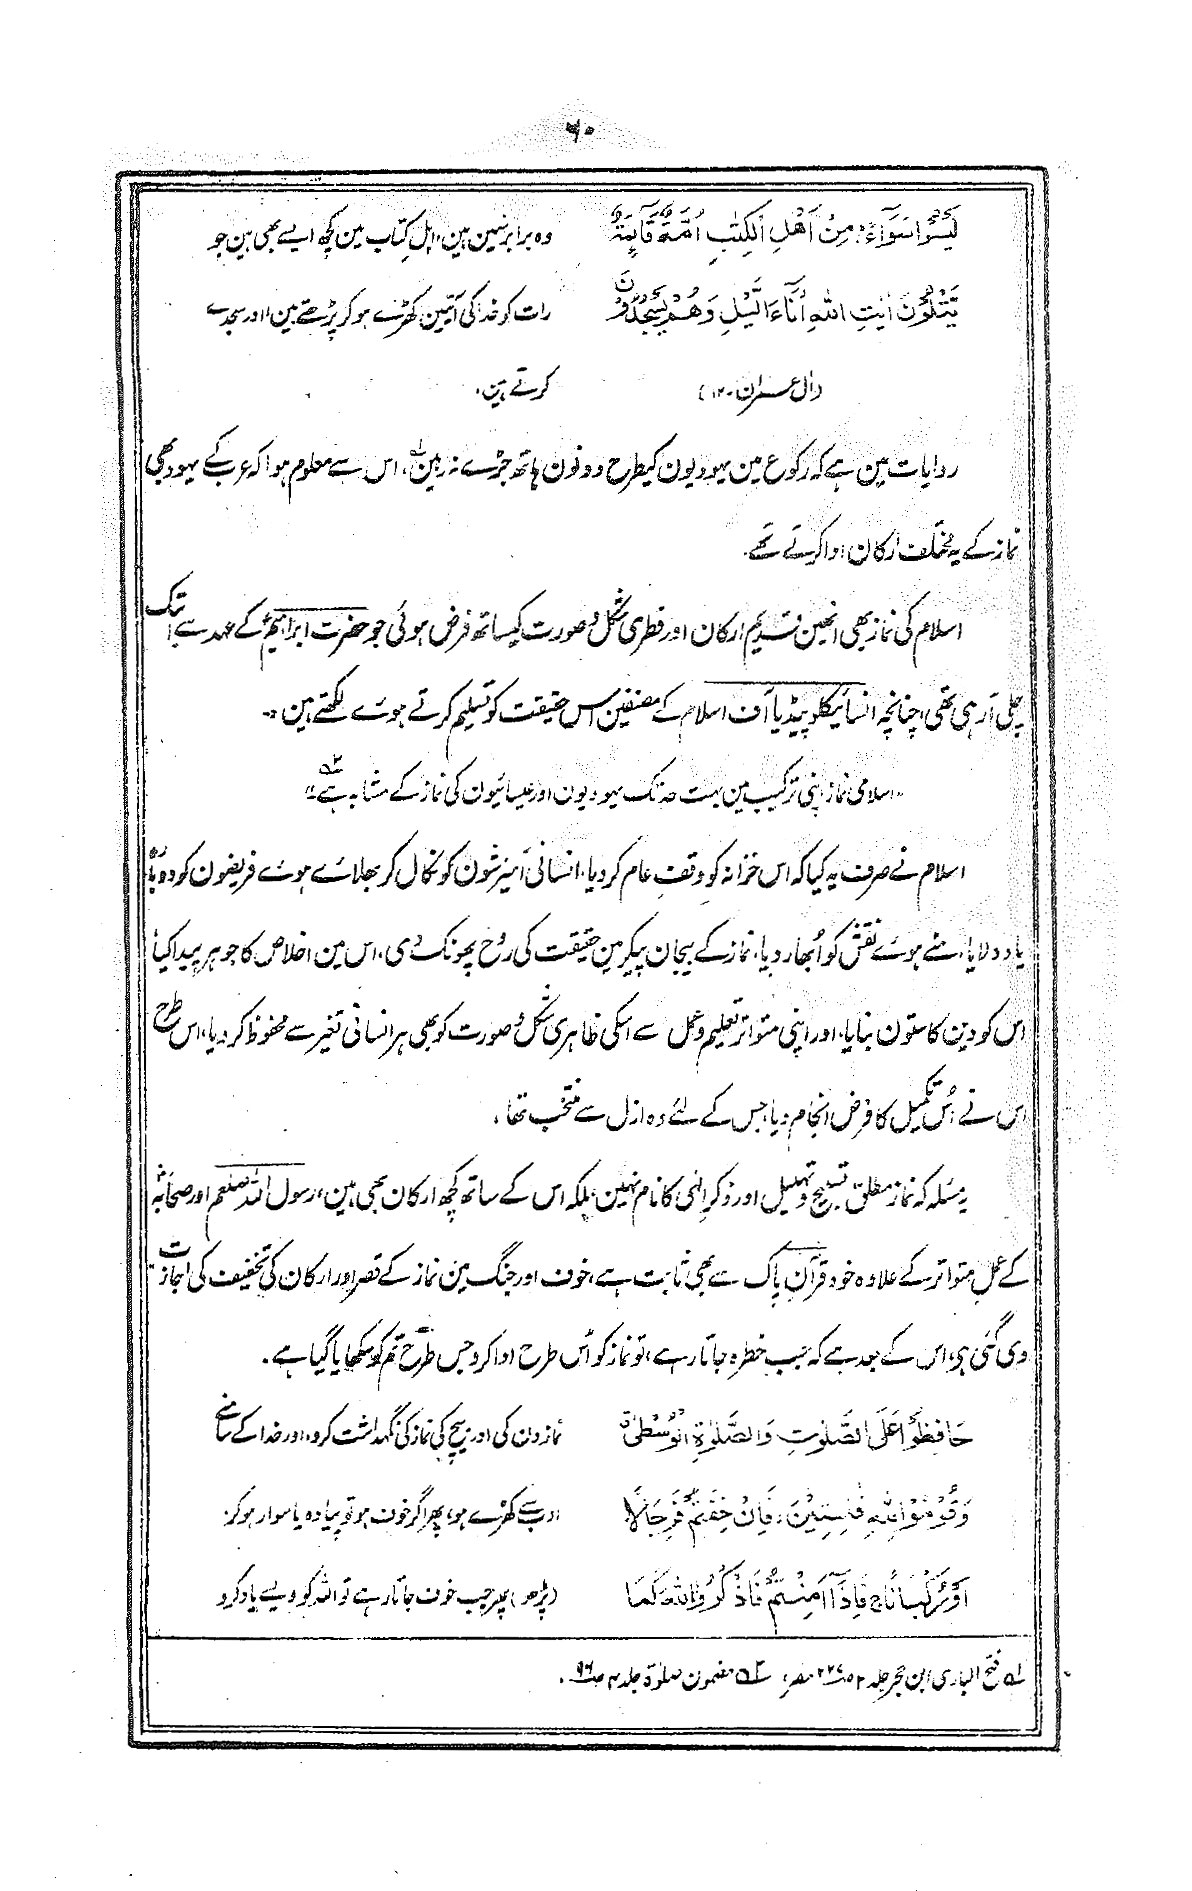 ۶۰
لَيْسُوْا سَوَآءً، مِنْ اَهْلِ الْكِتٰبِ اُمَّةٌ قَآئِمَةٌ وہ برابر نہین ہین، اہلِ کتاب مین کچھ ایسے بھی ہین جو
يَّتْلُوْنَ اٰيٰتِ اللّٰهِ اٰنَآءَ الَّيْلِ وَهُمْ يَسْجُدُوْنَ رات کو خدا کی آیتین کھڑے ہو کر پڑھتے ہین، اور سجدے
(اٰل عمران-۱۲) کرتے ہین،
روایات مین ہے کہ رکوع مین یہودیون کیطرح دونون ہاتھ جڑے نہ رہین لہ، اس سے معلوم ہوا کہ عرب کے یہود بھی
نماز کے یہ مختلف ارکان ادا کرتے تھے،
اسلام کی نماز بھی انھین قدیم ارکان اور فطری شکل و صورت کیساتھ فرض ہوئی جو حضرت ابراہیمؑ کے عہد سے ابتک
چلی آ رہی تھی، چنانچہ انسائیکلوپیڈیا آف اسلام کے مصنفین اس حقیقت کو تسلیم کرتے ہوئے لکھتے ہین :-
"اسلامی نماز اپنی ترکیب مین بہت حد تک یہودیون اور عیسائیون کی نماز کے مشابہ ہے ۲ہ"
اسلام نے صرف یہ کیا کہ اس خزانہ کو وقفِ عام کر دیا، انسانی آمیزشون کو نکال کر بھلائے ہوئے فریضون کو دوبارہ
یاد دلایا، مٹے ہوئے نقش کو اُبھار دیا، نماز کے بیجان پیکر مین حقیقت کی روح پھونک دی، اس مین اخلاص کا جوہر پیدا کیا،
اس کو دین کا ستون بنایا، اور اپنی متواتر تعلیم و عمل سے اسکی ظاہری شکل و صورت کو بھی ہر انسانی تغیر سے محفوظ کر دیا، اس طرح
اس نے اُس تکمیل کا فرض انجام دیا، جس کے لئے وہ ازل سے منتخب تھا،
یہ مسئلہ کہ نماز مطلق تسبیح و تہلیل اور ذکرِ الٰہی کا نام نہین بلکہ اس کے ساتھ کچھ ارکان بھی ہین، رسول اللہ صلعم اور صحابہؓ
کے عملِ متواتر کے علاوہ خود قرآنِ پاک سے بھی ثابت ہے، خوف اور جنگ مین نماز کے قصر اور ارکان کی تخفیف کی اجازت
دی گئی ہی، اس کے بعد ہے کہ جب خطرہ جاتا رہے، تو نماز کو اُس طرح ادا کرو جس طرح تم کو سکھایا گیا ہے،
حَافِظُوْا عَلَى الصَّلَوٰتِ وَالصَّلٰوةِ الْوُسْطٰى نمازون کی اور بیچ کی نماز کی نگہداشت کرو، اور خدا کے سامنے
وَقُوْمُوْا لِلّٰهِ قٰنِتِيْنَ، فَاِنْ خِفْتُمْ فَرِجَالًا ادب سے کھڑے ہو، پھر اگر خوف ہو تو پیادہ یا سوار ہو کر
اَوْ رُكْبَانًا ج فَاِذَآ اَمِنْتُمْ فَاذْكُرُوا اللّٰهَ كَمَا (پڑھو) پھر جب خوف جاتا رہے تو اللہ کو ویسے یاد کرو
لہ فتح الباری ابن حجر جلد ۲ ص ۲۲۷ مصر، ۲ہ مضمون صلوٰۃ جلد ۴ ص ۹۶،